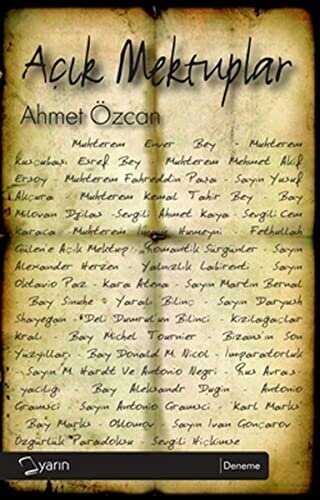 Açık Mektuplar
Ahmet Özcan
Muhterem Enver Bey - Muhterem
Kuşçubaşı Eşref Bey - Muhterem Mehmet Akif
Ersoy - Muhterem Fahreddin Paşa - Sayın Yusuf
Akçura - Muhterem Kemal Tahir Bey Bay
Milovan Djilas -Sevgili Ahmet Kaya - Sevgili Cem
Karaca - Muhterem İmam Humeyni - Fethullah
Gülen'e Açık Mektup - Romantik Sürgünler - Sayın
Alexander Herzen - Yalnızlık Labirenti Sayın
Oktavio Paz - Kara Atena - Sayın Martin Bernal
- Bay Sinuhe - Yaralı Bilinç - Sayın Daryush
Shayegan - "Deli Dumrul'un Bilinci - Kızılağaçlar
Kralı - Bay Michel Tournier - Bizans'ın Son
Yüzyılları - Bay Donald M. Nicol - İmparatorluk
- Sayın M. Hardt Ve Antonio Negri - Rus Avras-
yacılığı - Bay Aleksandr Dugin Antonio
Gramsci - Sayın Antonio Gramsci - Karl Marks
- Bay Marks - Oblomov - Sayın Ivan Gonçarov
Özgürlük Paradoksu - Sevgili Hiçkimse
yarın
Deneme